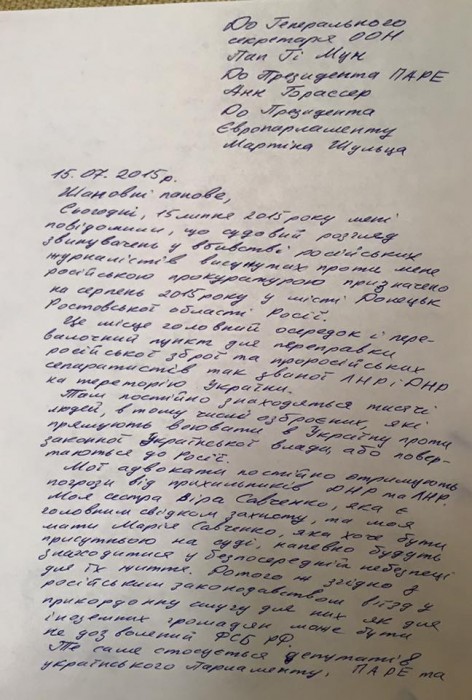 До Генерального
секретаря ООН
Пан Гі Мун
До Президента ПАРЕ
Анн Брассер
До Президента
Європарламенту
Мартіна Шульца
15.07.2015р.
Шановні панове,
Сьогодні, 15 липня 2015 року мені
повідомили, що судовий розгляд
звинувачень у вбивстві російських
журналістів висунутих проти мене
російською прокуратурою призначено
на серпень 2015 року у місті Донецьк
Ростовської області Росії.
Це місце головний осередок і пере-
валочний пункт для переправки
російської зброї та проросійських
сепаратистів так званої ЛНР і ДНР
на територію України.
Там постійно знаходяться тисячі
людей, в тому числі озброєних, які
прямують воювати в Україну проти
законної Української влади, або повер-
таються до Росії.
Мої адвокати постійно отримують
погрози від прихильників ДНР та ЛНР.
Моя сестра Віра Савченко, яка є
головним свідком захисту, та моя
мати Марія Савченко, яка хоче бути
присутньою на суді, напевно будуть
знаходитися у безпосередній небезпеці
для їх життя. До того ж згідно з
російським законодавством в'їзд у
прикордонну смугу для них як для
іноземних громадян може бути
не дозволений ФСБ РФ.
Те саме стосується депутатів
українського Парламенту, ПАРЕ та